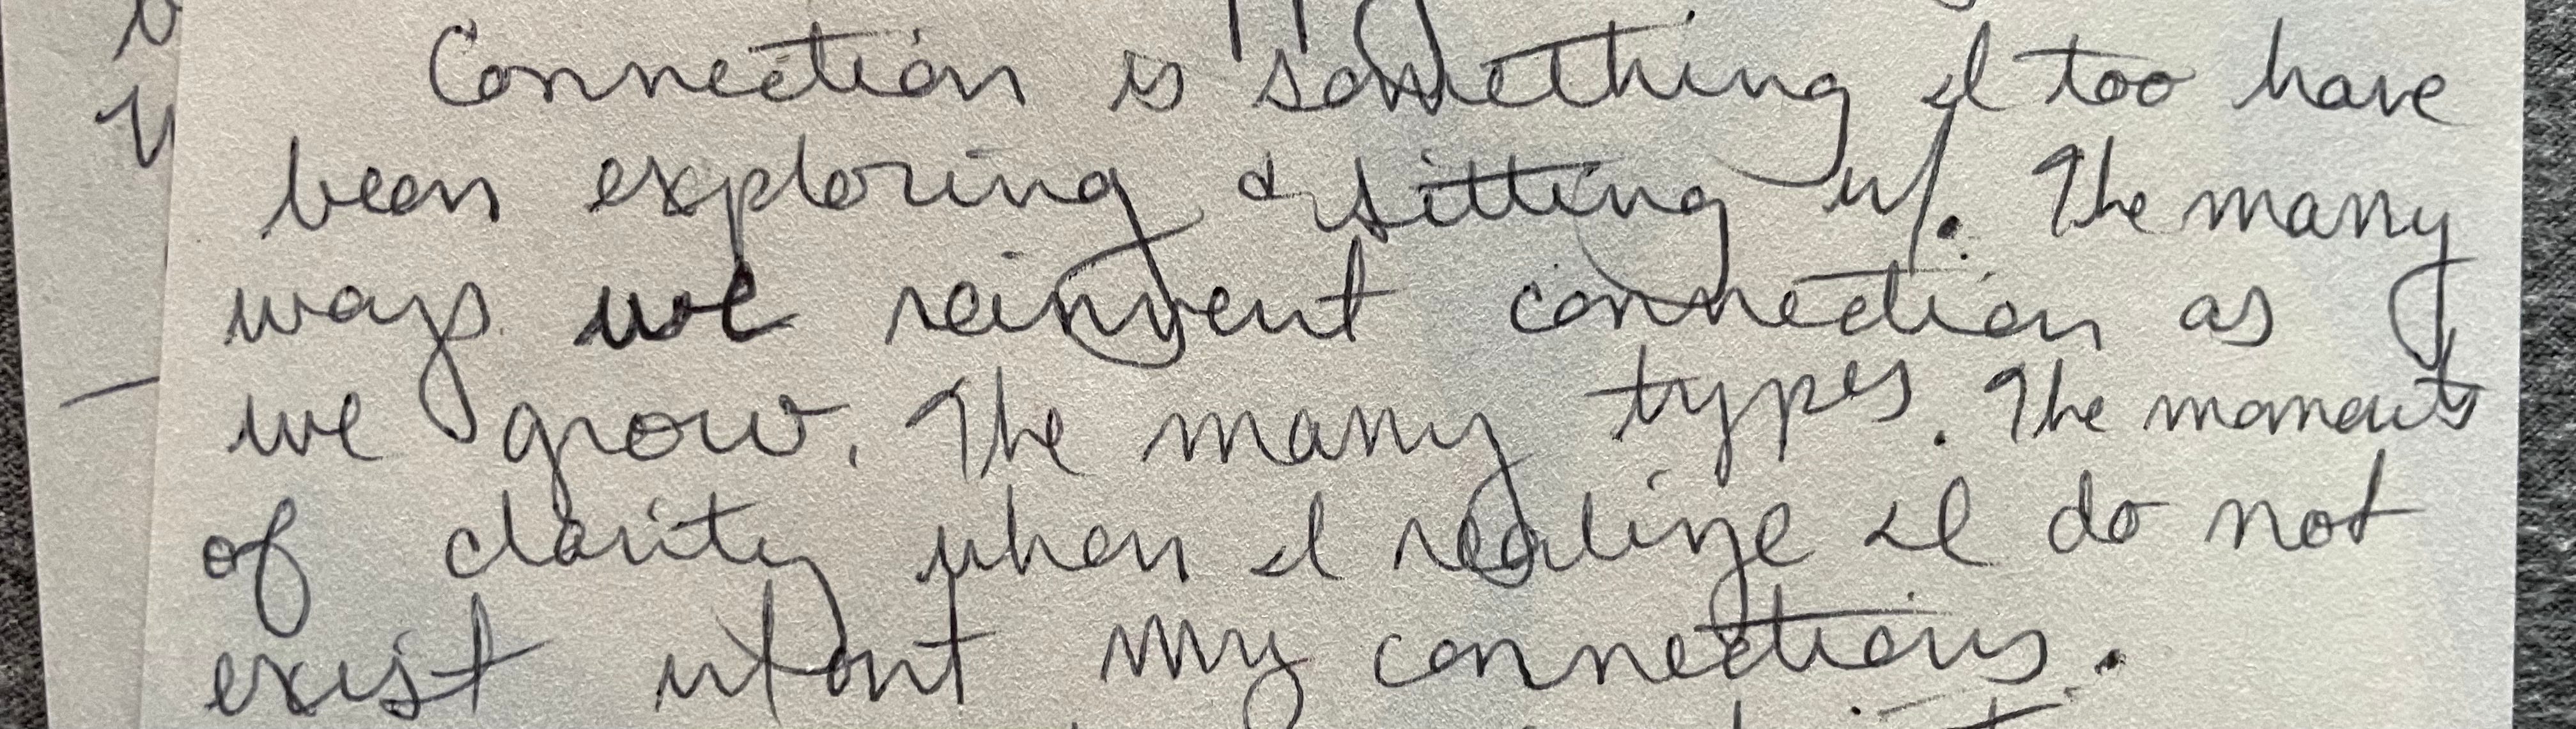 Connection is something I too have
been exploring & sitting w/. The many
ways we reinvent connection as
we grow. The many types. The moments
of clarity when I realize I do not
exist w/out my connections.